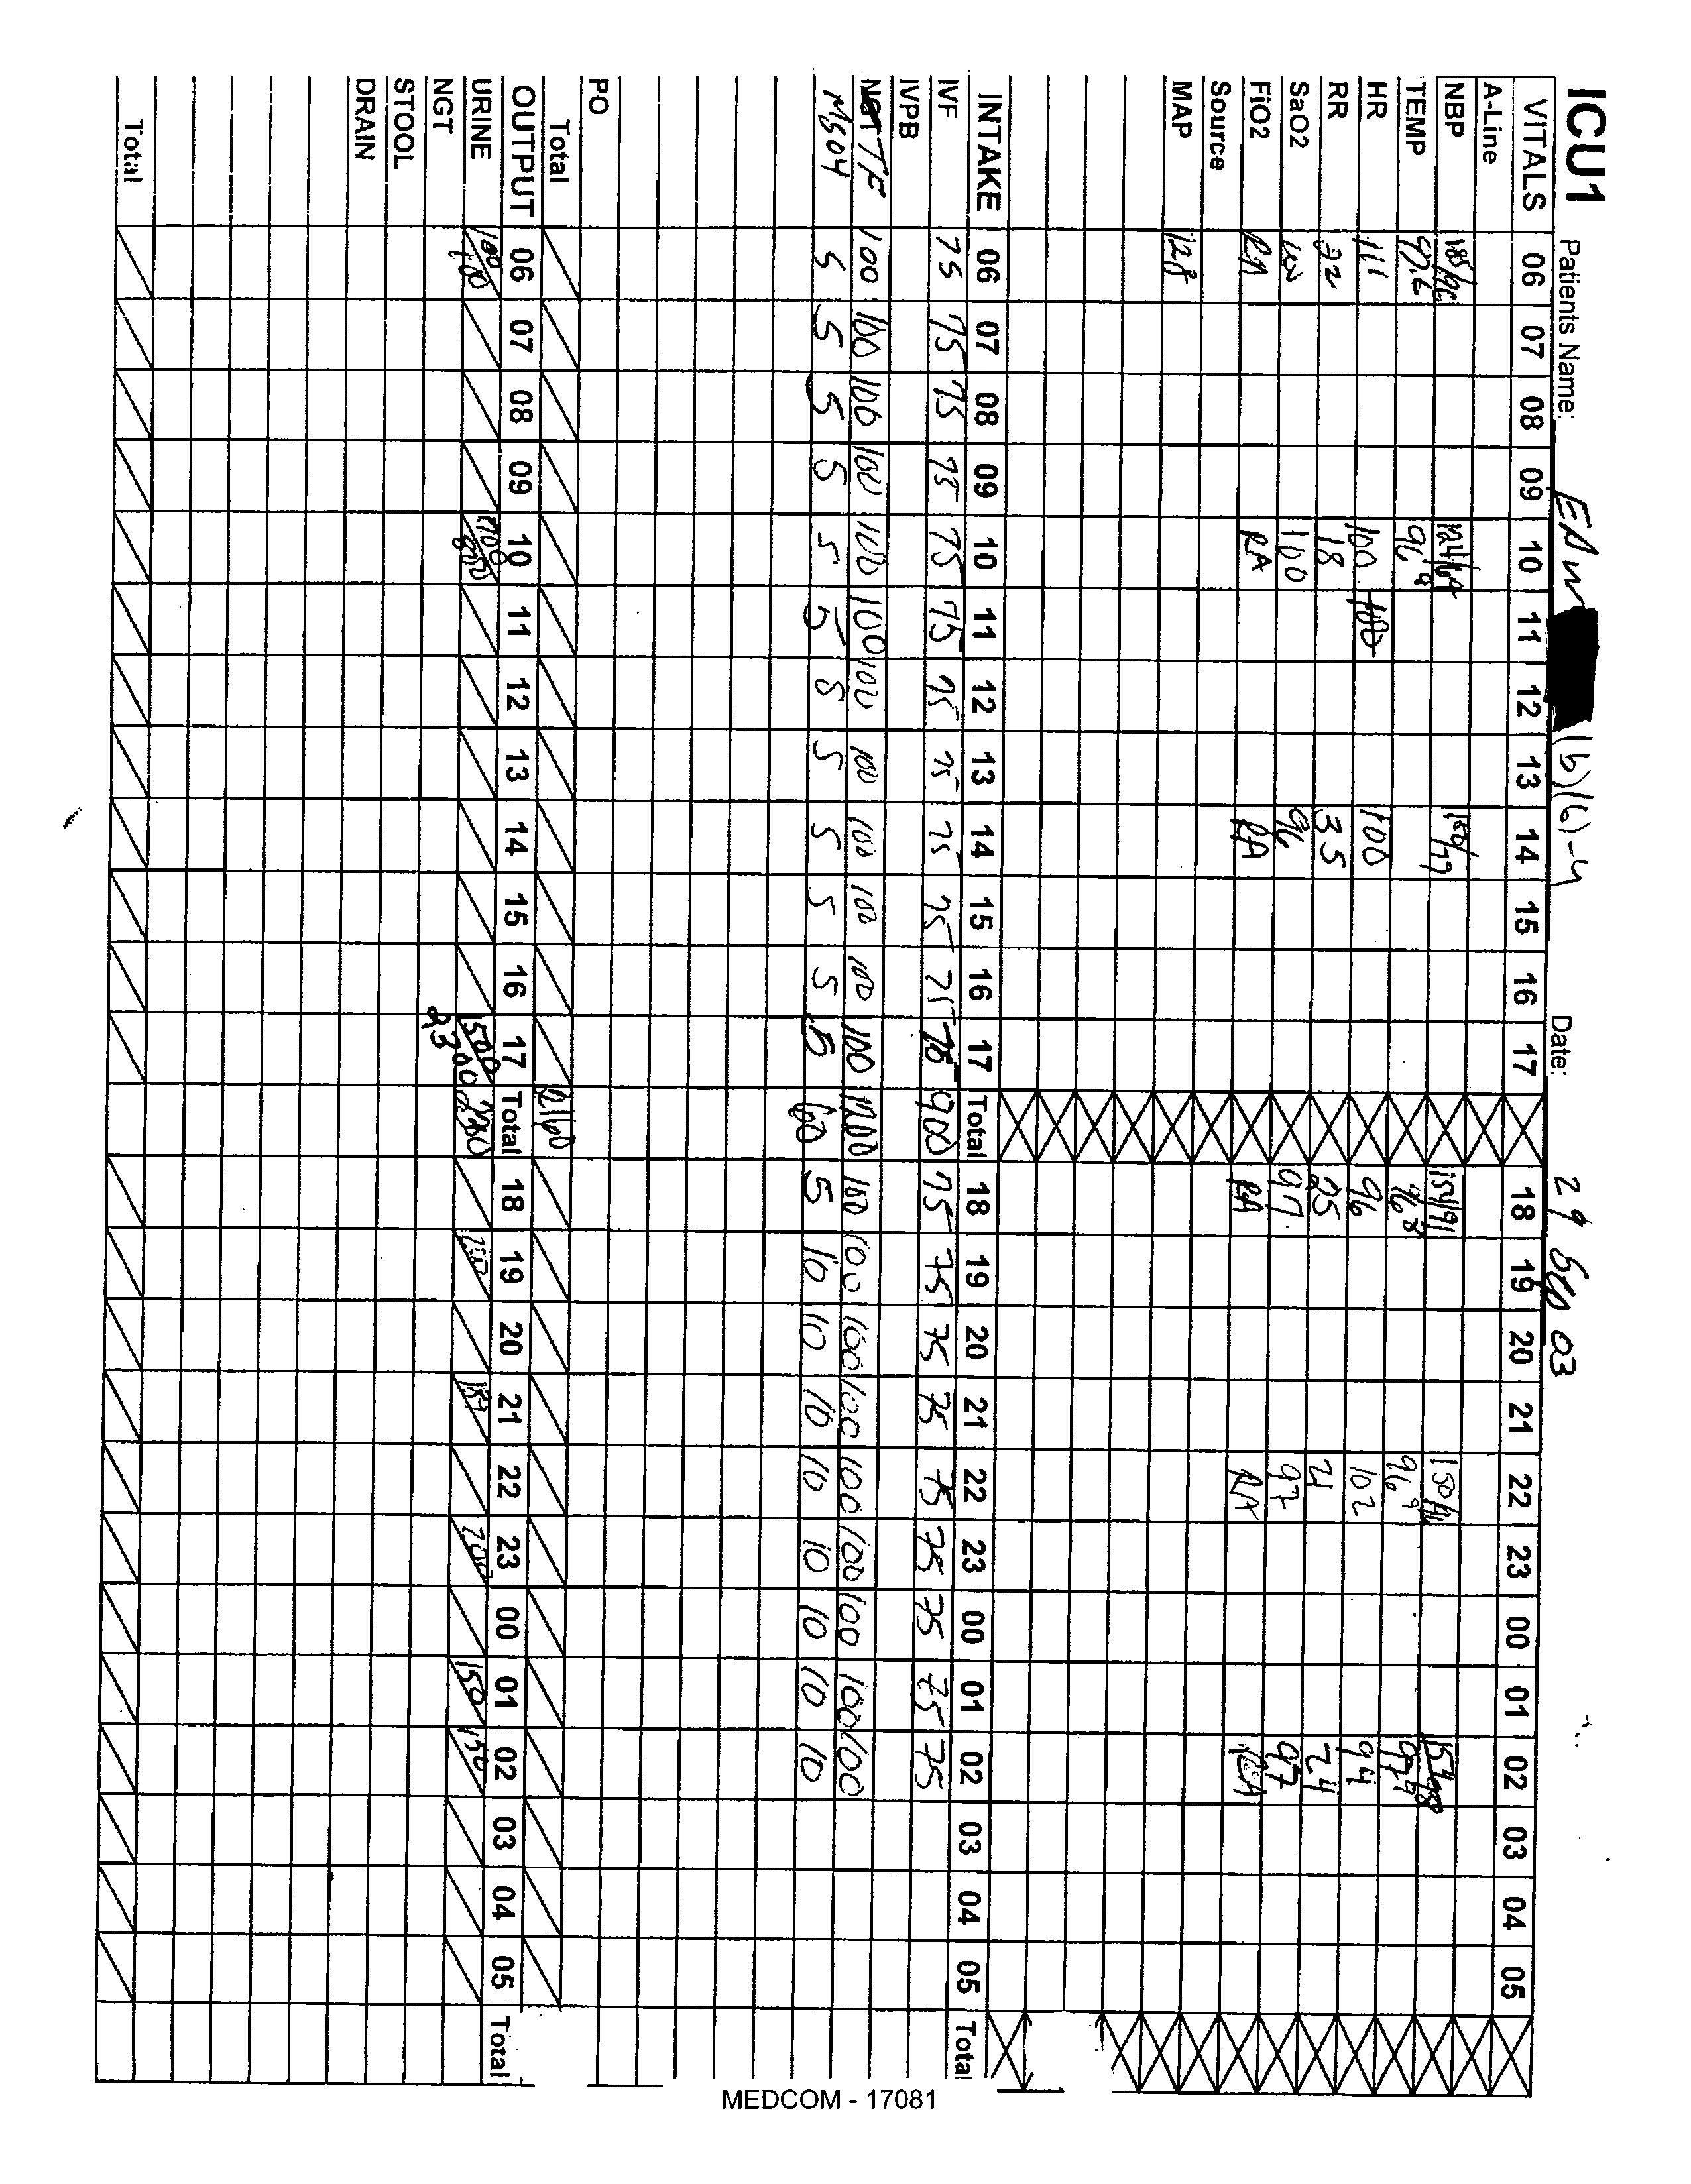 ICU1 Patients Name: (b)(6)-4 Date: 29 Sep 03
VITALS 06 07 08 09 10 11 12 13 14 15 16 17 18 19 20 21 22 23 00 01 02 03 04 05
A-Line
NBP 185/96 124/64 150/77 154/91 154/98
TEMP 97.6 96.8 96.8 96.9
HR 111 100 100 100 96 102 94
RR 22 18 35 25 21 24
SaO2 100 100 96 97 97 97
FiO2 RA RA RA RA RA RA
Source
MAP 128
INTAKE 06 07 08 09 10 11 12 13 14 15 16 17 Total 18 19 20 21 22 23 00 01 02 03 04 05 Total
IVF 75 75 75 75 75 75 75 75 75 75 75 75 900 75 75 75 75 75 75 75 75 75
IVPB
NGT TF 100 100 100 100 100 100 100 100 100 100 100 100 1200 100 100 100 100 100 100 100 100 100
MSO4 5 5 5 5 5 5 5 5 5 5 5 5 60 5 10 10 10 10 10 10 10 10
PO
Total 2160
OUTPUT 06 07 08 09 10 11 12 13 14 15 16 17 Total 18 19 20 21 22 23 00 01 02 03 04 05 Total
URINE 100 100 700 800 1500 2300 200 200 150 150
NGT
STOOL
DRAIN
Total
MEDCOM - 17081